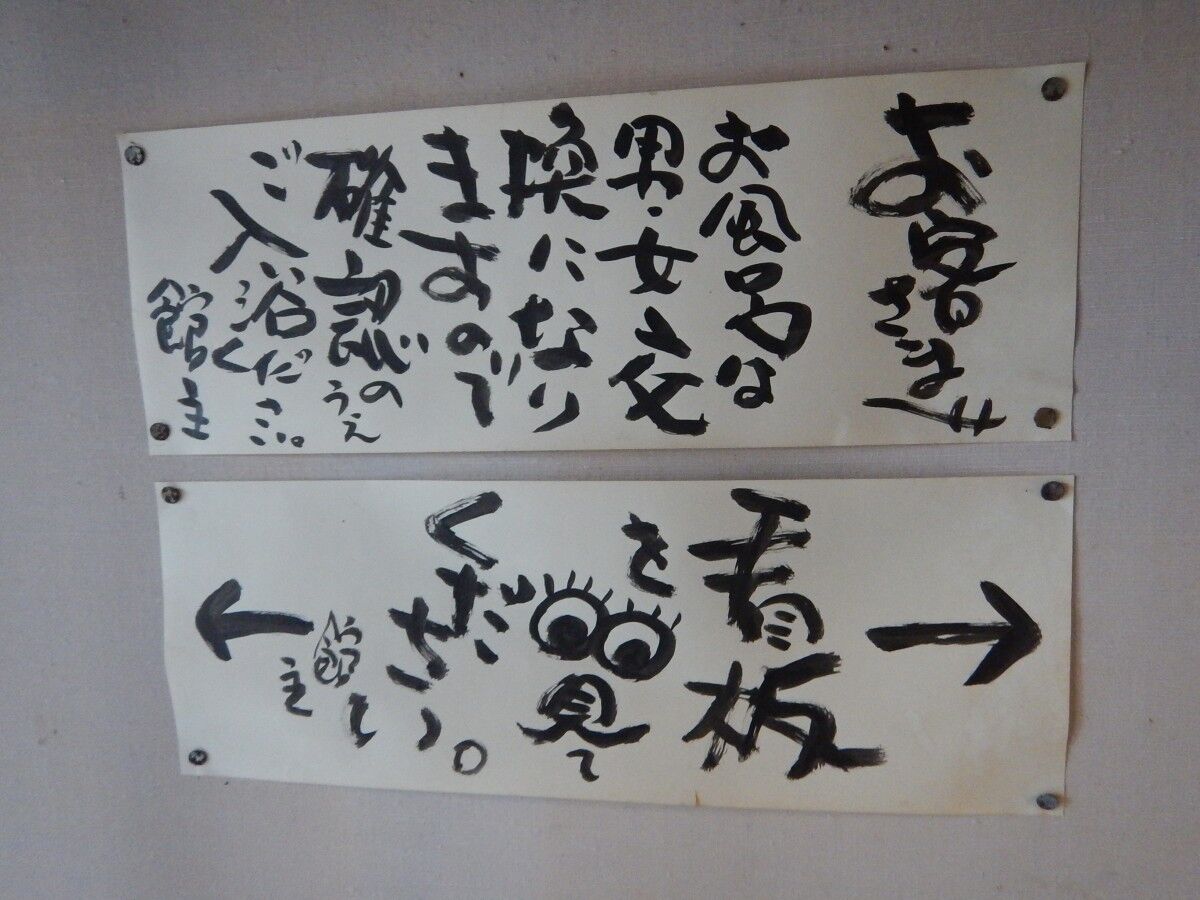 お客さまへ
お風呂は
男・女交
換になり
ますので
確認のうえ
ご入浴くだ
さい。
館主
→
看板
を👀見て
ください。
館主
←